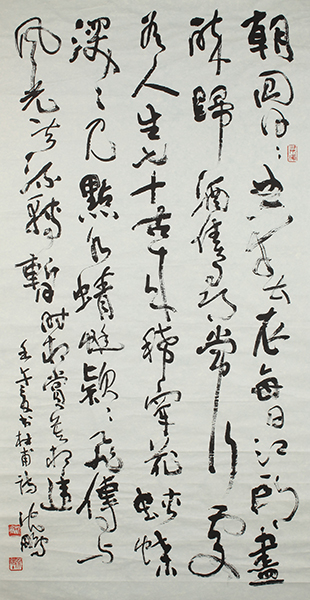 朝回日〻典春衣每日江頭盡
醉歸酒債尋常行處
有人生七十古来稀穿花蛺蝶
深〻見點水蜻蜓款〻飛傳与
風光共流轉暫時相賞莫相違
壬午夏书杜甫詩 沈鵬